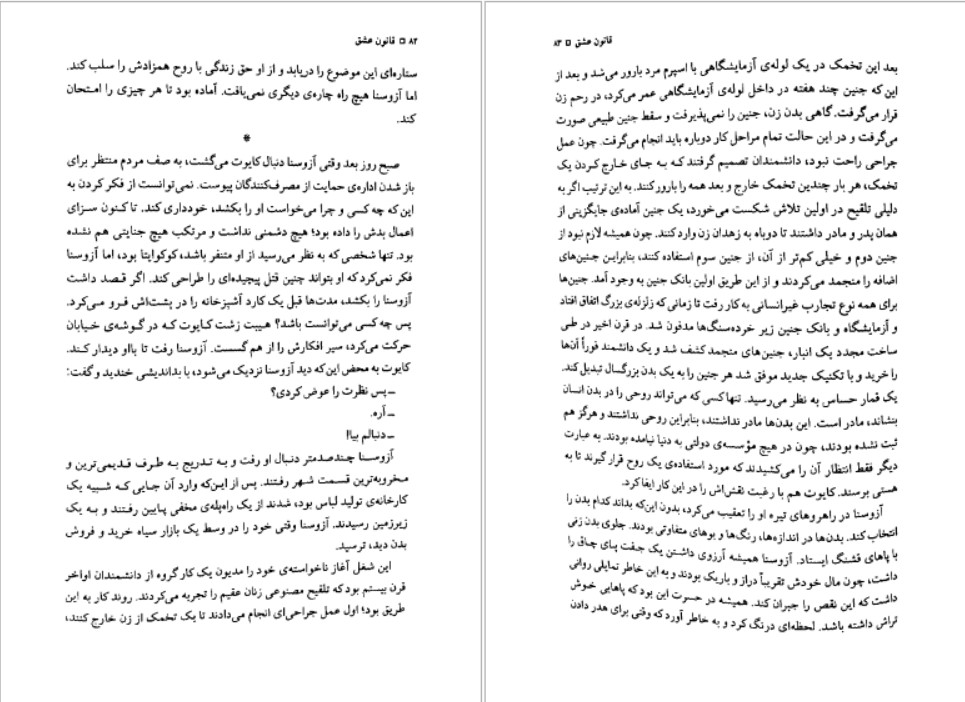 ۸۲ □ قانون عشق
ستاره‌ای این موضوع را دریابد و از او حق زندگی با روح همزادش را سلب کند.
اما آزوسنا هیچ راه چاره‌ی دیگری نمی‌یافت. آماده بود تا هر چیزی را امتحان
کند.
*
صبح روز بعد وقتی آزوسنا دنبال کایوت می‌گشت، به صف مردم منتظر برای
باز شدن اداره‌ی حمایت از مصرف‌کنندگان پیوست. نمی‌توانست از فکر کردن به
این که چه کسی و چرا می‌خواست او را بکشد، خودداری کند. تاکنون سزای
اعمال بدش را داده بود؛ هیچ دشمنی نداشت و مرتکب هیچ جنایتی هم نشده
بود. تنها شخصی که به نظر می‌رسید از او متنفر باشد، کوکوایتا بود، اما آزوسنا
فکر نمی‌کرد که او بتواند چنین قتل پیچیده‌ای را طراحی کند. اگر قصد داشت
آزوسنا را بکشد، مدت‌ها قبل یک کارد آشپزخانه را در پشت‌اش فرو می‌کرد.
پس چه کسی می‌توانست باشد؟ هیبت زشت کایوت که در گوشه‌ی خیابان
حرکت می‌کرد، سیر افکارش را از هم گسست. آزوسنا رفت تا بااو دیدار کند.
کایوت به محض این‌که دید آزوسنا نزدیک می‌شود، با بداندیشی خندید و گفت:
ـ پس نظرت را عوض کردی؟
ـ آره.
ـ دنبالم بیا!
آزوسنا چندصدمتر دنبال او رفت و به تدریج به طرف قدیمی‌ترین و
مخروبه‌ترین قسمت شهر رفتند. پس از این‌که وارد آن جایی که شبیه یک
کارخانه‌ی تولید لباس بود، شدند از یک راه‌پله‌ی مخفی پایین رفتند و به یک
زیرزمین رسیدند. آزوسنا وقتی خود را در وسط یک بازار سیاه خرید و فروش
بدن دید، ترسید.
این شغل آغاز ناخواسته‌ی خود را مدیون یک کار گروه از دانشمندان اواخر
قرن بیستم بود که تلقیح مصنوعی زنان عقیم را تجربه می‌کردند. روند کار به این
طریق بود؛ اول عمل جراحی‌ای انجام می‌دادند تا یک تخمک از زن خارج کنند،
قانون عشق □ ۸۳
بعد این تخمک در یک لوله‌ی آزمایشگاهی با اسپرم مرد بارور می‌شد و بعد از
این‌که جنین چند هفته در داخل لوله‌ی آزمایشگاهی عمر می‌کرد، در رحم زن
قرار می‌گرفت. گاهی بدن زن، جنین را نمی‌پذیرفت و سقط جنین طبیعی صورت
می‌گرفت و در این حالت تمام مراحل کار دوباره باید انجام می‌گرفت. چون عمل
جراحی راحت نبود، دانشمندان تصمیم گرفتند که به جای خارج کردن یک
تخمک، هر بار چندین تخمک خارج و بعد همه را بارور کنند. به این ترتیب اگر به
دلیلی تلقیح در اولین تلاش شکست می‌خورد، یک جنین آماده‌ی جایگزینی از
همان پدر و مادر داشتند تا دوباه به زهدان زن وارد کنند. چون همیشه لازم نبود از
جنین دوم و خیلی کم‌تر از آن، از جنین سوم استفاده کنند، بنابراین جنین‌های
اضافه را منجمد می‌کردند و از این طریق اولین بانک جنین به وجود آمد. جنین‌ها
برای همه نوع تجارب غیرانسانی به کار رفت تا زمانی که زلزله‌ی بزرگ اتفاق افتاد
و آزمایشگاه و بانک جنین زیر خرده‌سنگ‌ها مدفون شد. در قرن اخیر در طی
ساخت مجدد یک انبار، جنین‌های منجمد کشف شد و یک دانشمند فوراً آن‌ها
را خرید و با تکنیک جدید موفق شد هر جنین را به یک بدن بزرگسال تبدیل کند.
یک قمار حساس به نظر می‌رسید. تنها کسی که می‌تواند روحی را در بدن انسان
بنشاند، مادر است. این بدن‌ها مادر نداشتند، بنابراین روحی نداشتند و هرگز هم
ثبت نشده بودند، چون در هیچ مؤسسه‌ی دولتی به دنیا نیامده بودند. به عبارت
دیگر فقط انتظار آن را می‌کشیدند که مورد استفاده‌ی یک روح قرار گیرند تا به
هستی برسند. کایوت هم با رغبت نقش‌اش را در این کار ایفا کرد.
آزوسنا در راهروهای تیره او را تعقیب می‌کرد، بدون این‌که بداند کدام بدن را
انتخاب کند. بدن‌ها در اندازه‌ها، رنگ‌ها و بوهای متفاوتی بودند. جلوی بدن زنی
با پاهای قشنگ ایستاد. آزوسنا همیشه آرزوی داشتن یک جفت پای چاق را
داشت، چون مال خودش تقریباً دراز و باریک بودند و به این خاطر تمایلی روانی
داشت که این نقص را جبران کند. همیشه در حسرت این بود که پاهایی خوش
تراش داشته باشد. لحظه‌ای درنگ کرد و به خاطر آورد که وقتی برای هدر دادن